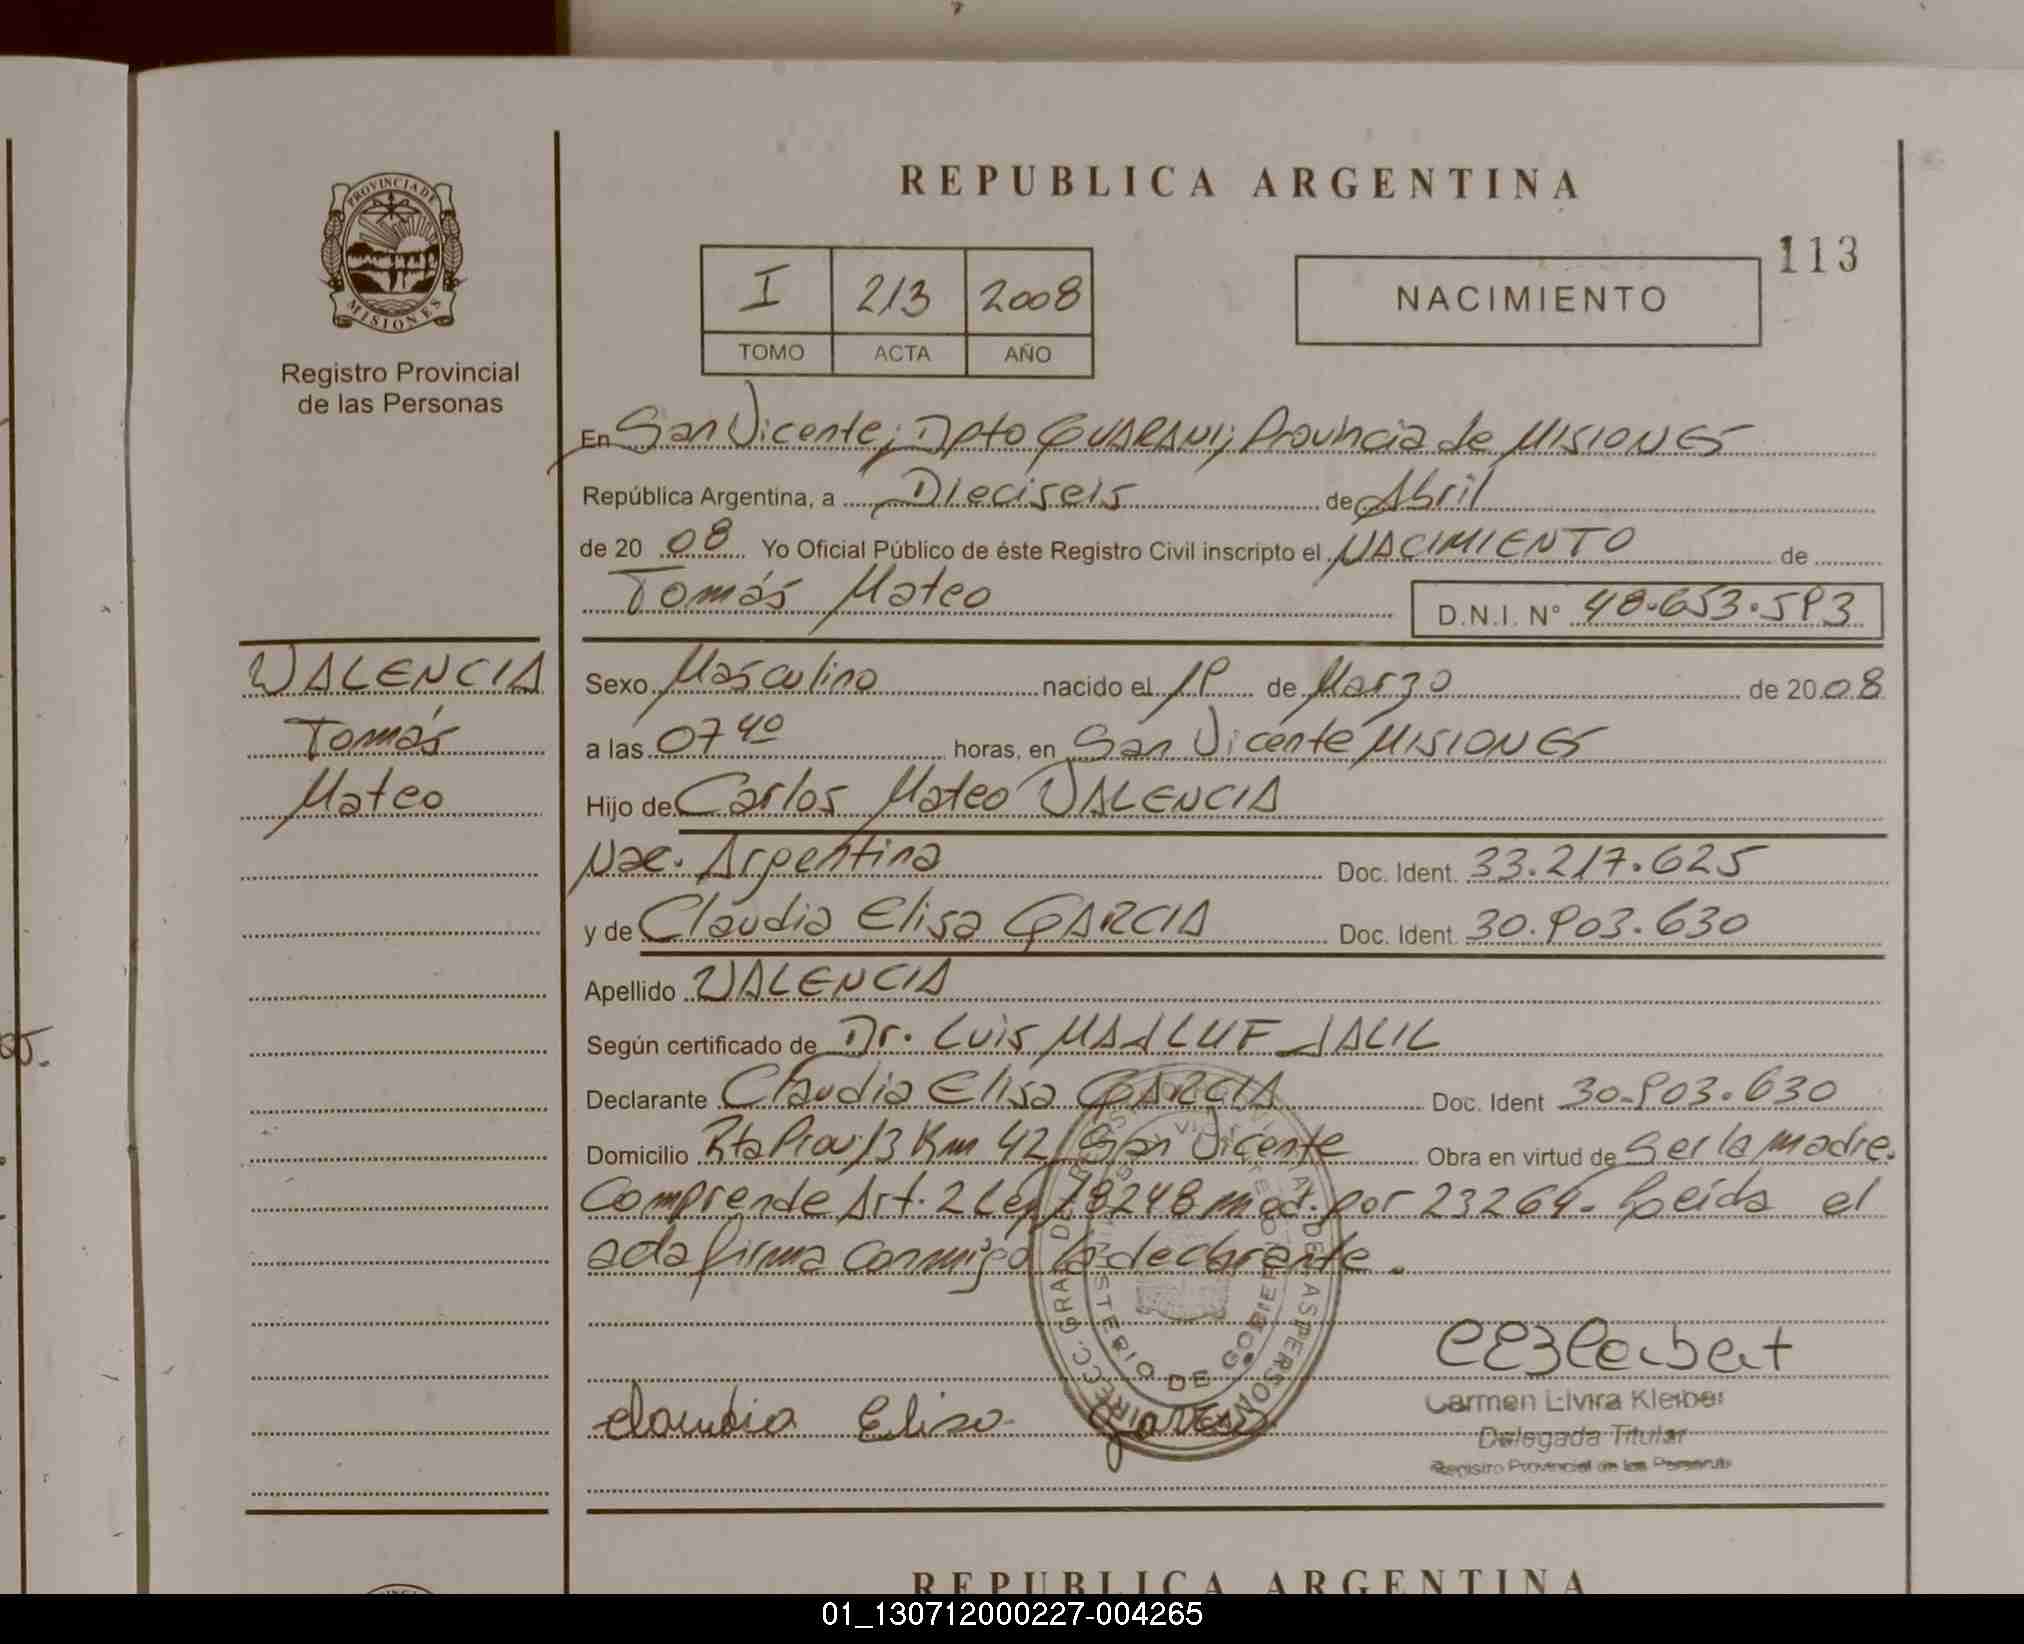 REPUBLICA ARGENTINA
113
PROVINCIA DE
MISIONES
Registro Provincial
de las Personas
I 213 2008
TOMO ACTA AÑO
NACIMIENTO
En San Vicente; Dpto GUARANI; Provincia de MISIONES
República Argentina, a Dieciseis de Abril
de 20 08 Yo Oficial Público de éste Registro Civil inscripto el NACIMIENTO de
Tomás Mateo D.N.I. N° 48.653.593
VALENCIA
Tomás
Mateo
Sexo Masculino nacido el 19 de Marzo de 20 08
a las 07 40 horas, en San Vicente MISIONES
Hijo de Carlos Mateo VALENCIA
Nac. Argentina Doc. Ident. 33.217.625
y de Claudia Elisa GARCIA Doc. Ident. 30.903.630
Apellido VALENCIA
Según certificado de Dr. Luis MAALUF JALIL
Declarante Claudia Elisa GARCIA Doc. Ident 30.903.630
Domicilio Rta Prov 13 Km 42 San Vicente Obra en virtud de Ser la madre.
Comprende Art. 2 Ley 18248 mod. por 23264. Leída el
acta firma conmigo la declarante.
MINISTERIO DE GOBIERNO
Claudia Elisa Garcia
Carmen Elvira Kleiber
Delegada Titular
Registro Provincial de las Personas
REPUBLICA ARGENTINA
01_130712000227-004265